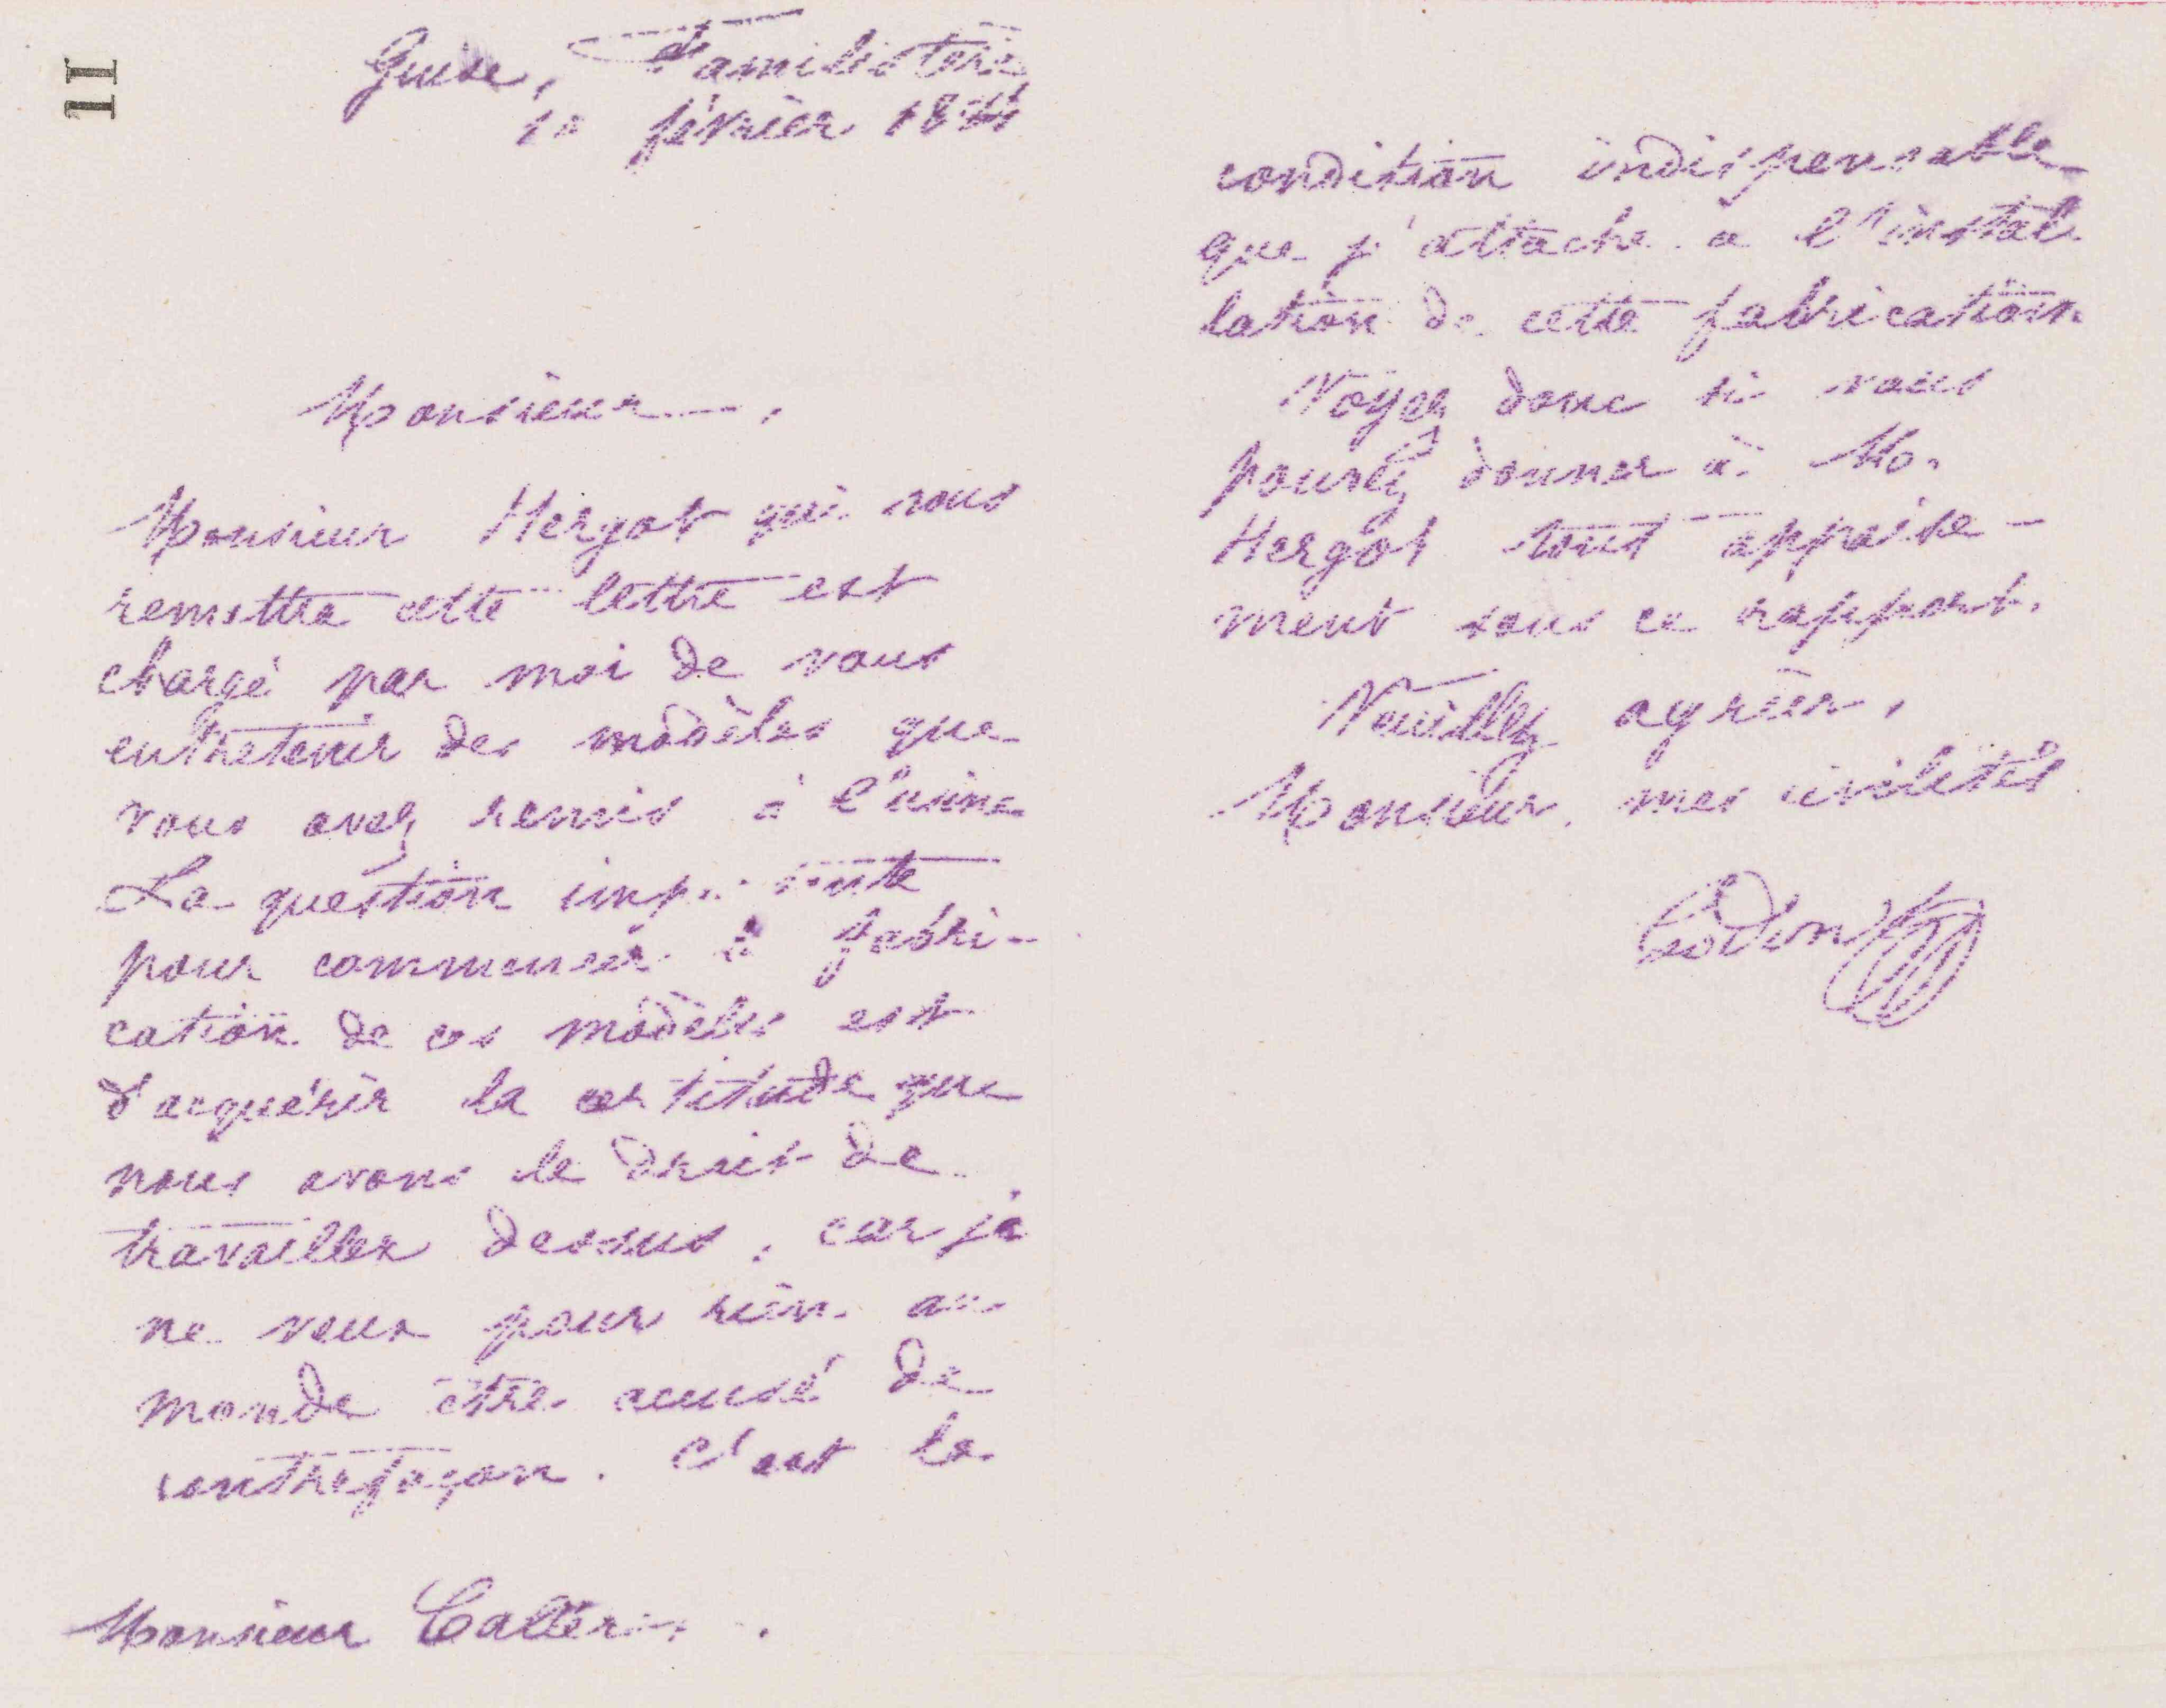 11
Guise, Familistère
février
Monsieur,
Monsieur Hergot qui vous
remettra cette lettre est
chargé par moi de vous
entretenir des modèles que
vous avez remis à l'usine
La question
pour commencer fabri-
cation de ces modèles est
d'acquérir la certitude que
nous avons le droit de
travailler dessus, car je
ne veux pour rien au
monde être accusé de
contrefaçon. C'est la
Monsieur
condition indispensable
que j'attache à l'instal
lation de cette fabrication
Voyez donc si vous
pouvez donner à M.
Hergot tout appaise-
ment sous ce rapport.
Veuillez agréer,
Monsieur, mes civilités
Godin